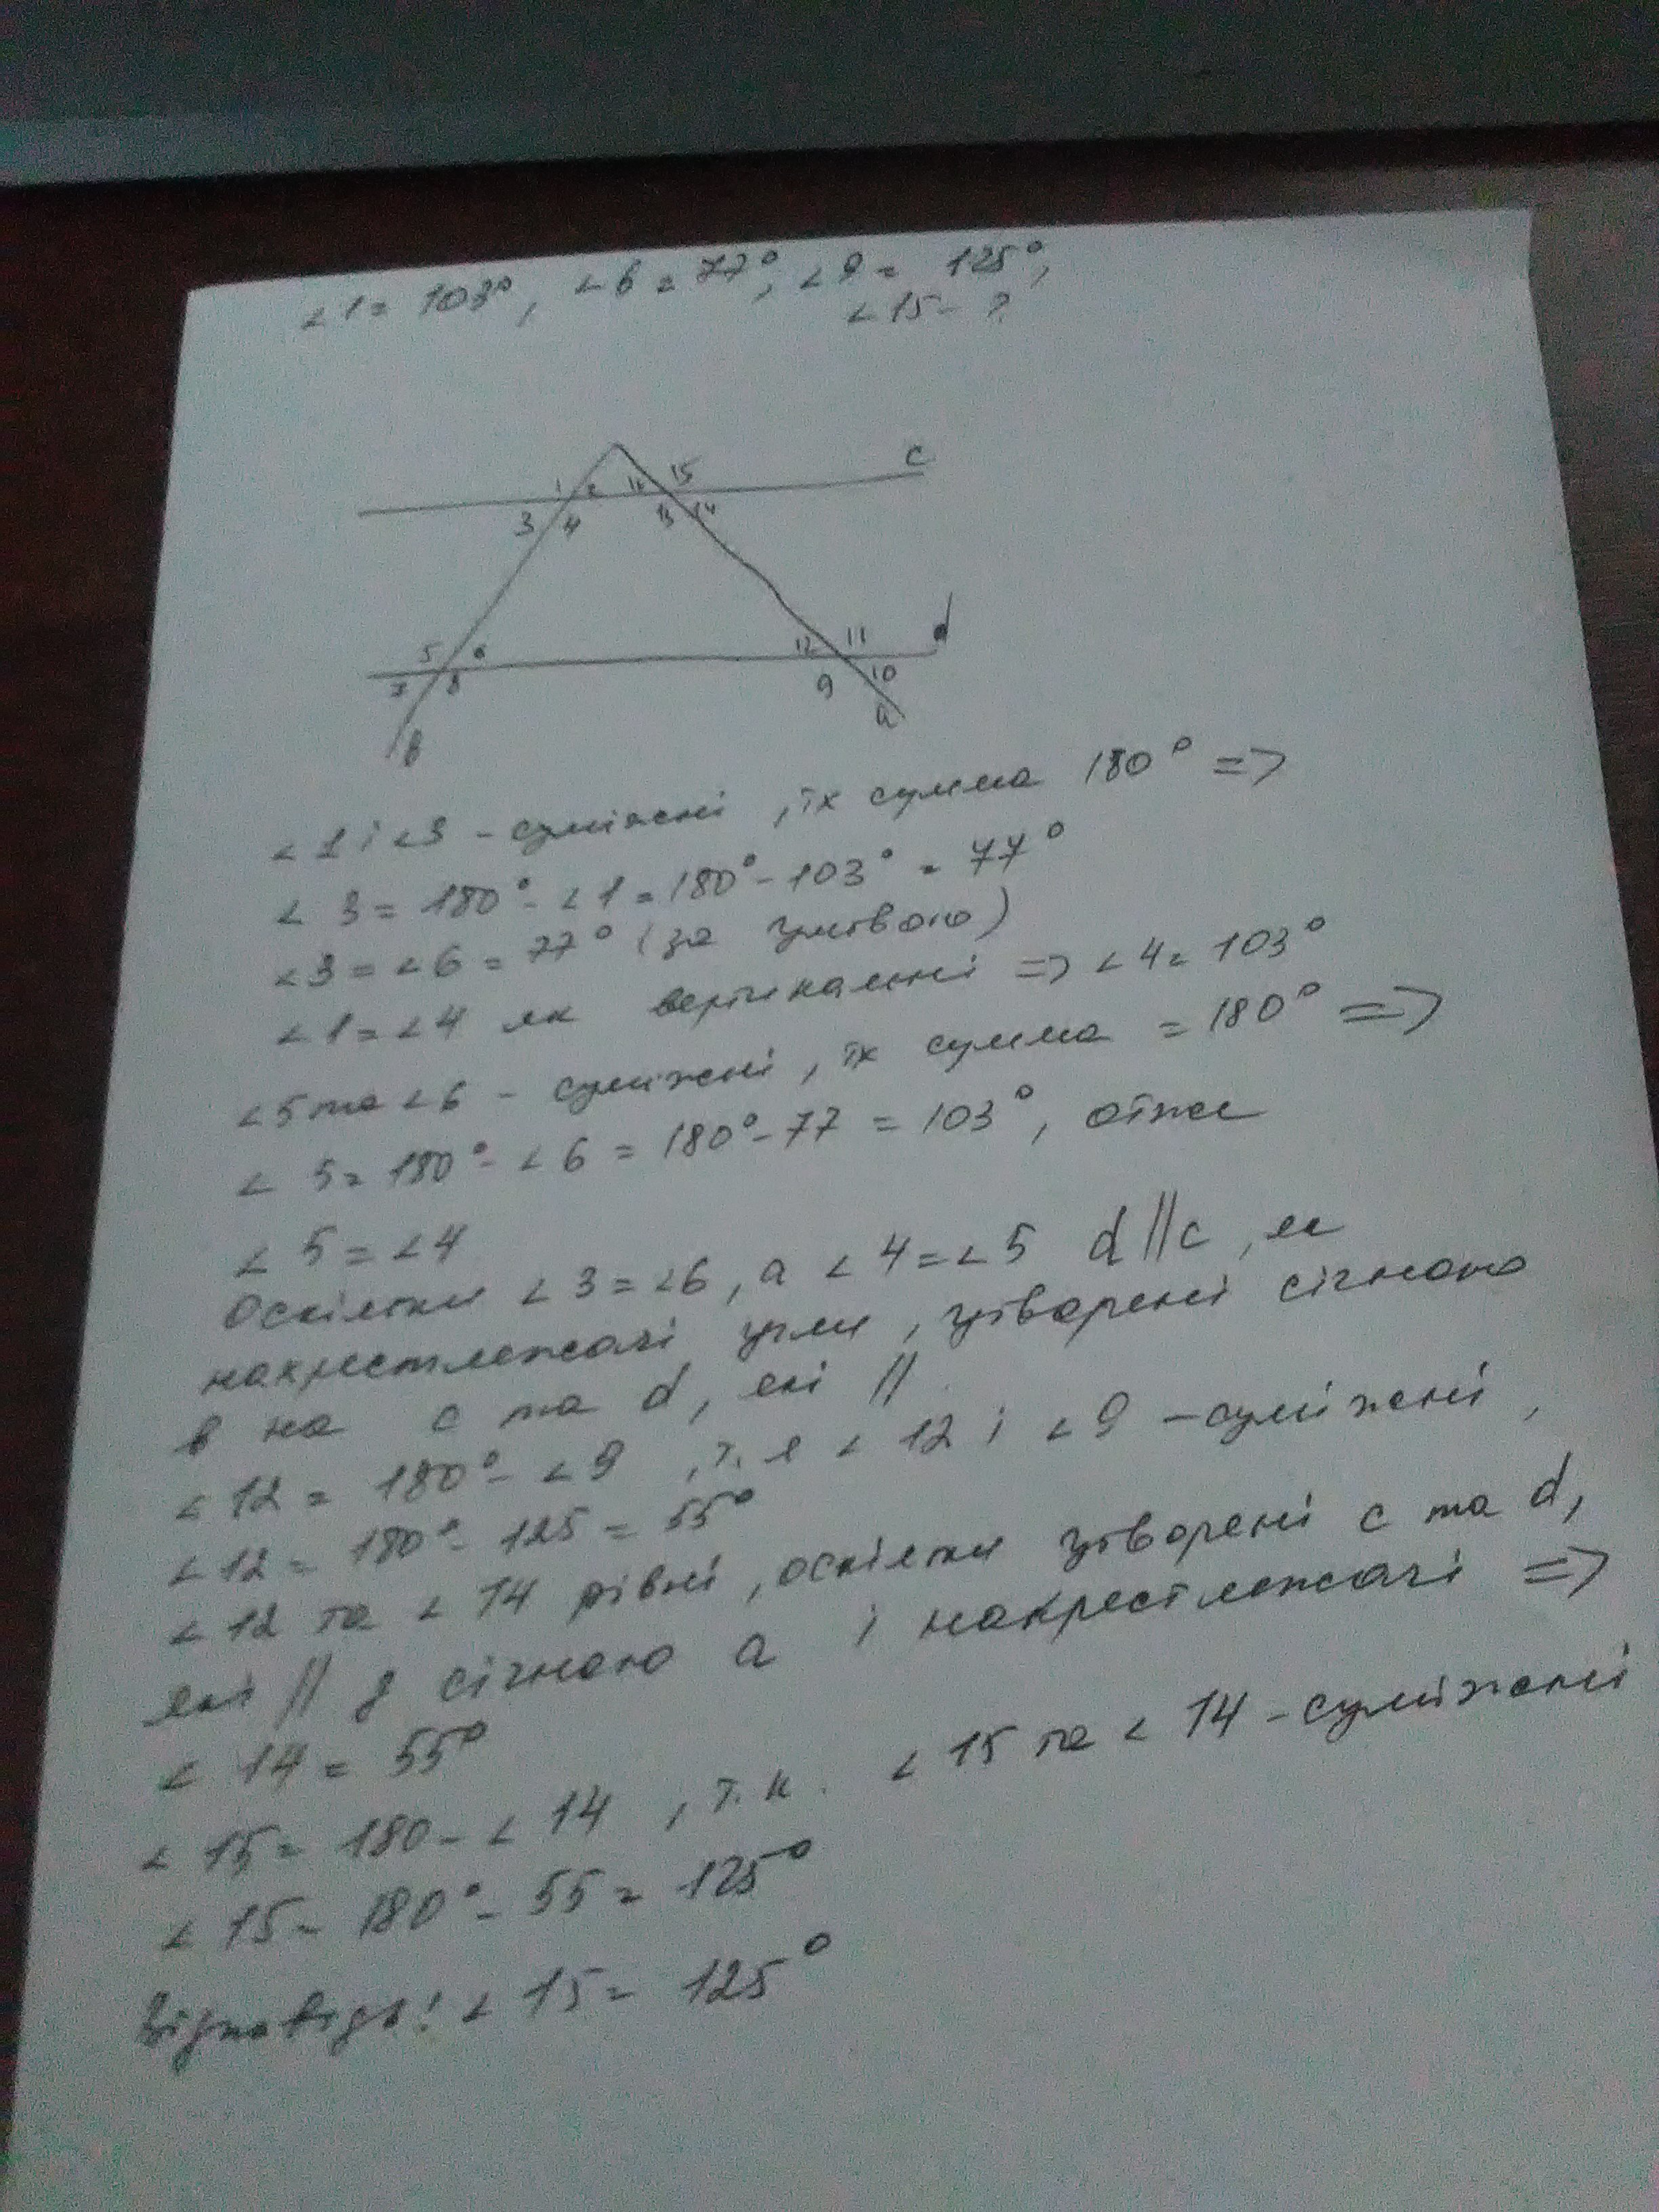 ∠1 = 103°, ∠6 = 77°, ∠9 = 125°,
∠15 - ?
c
1 2 16 15
3 4 13 14
d
5 6 12 11
7 8 9 10
в a
∠1 і ∠3 - суміжні, їх сумма 180° =>
∠3 = 180° - ∠1 = 180° - 103° = 77°
∠3 = ∠6 = 77° (за умовою)
∠1 = ∠4 як вертикальні => ∠4 = 103°
∠5 та ∠6 - суміжні, їх сумма = 180° =>
∠5 = 180° - ∠6 = 180° - 77 = 103°, отже
∠5 = ∠4
Оскільки ∠3 = ∠6, а ∠4 = ∠5 d || c, як
накрестлежачі угли, утворені січною
в на c та d, які ||
∠12 = 180° - ∠9, т. я ∠12 і ∠9 - суміжні,
∠12 = 180° - 125 = 55°
∠12 та ∠14 рівні, оскільки утворені c та d,
які || з січною a і накрестлежачі =>
∠14 = 55°
∠15 = 180 - ∠14, т. к. ∠15 та ∠14 - суміжні
∠15 = 180° - 55 = 125°
Відповідь: ∠15 = 125°